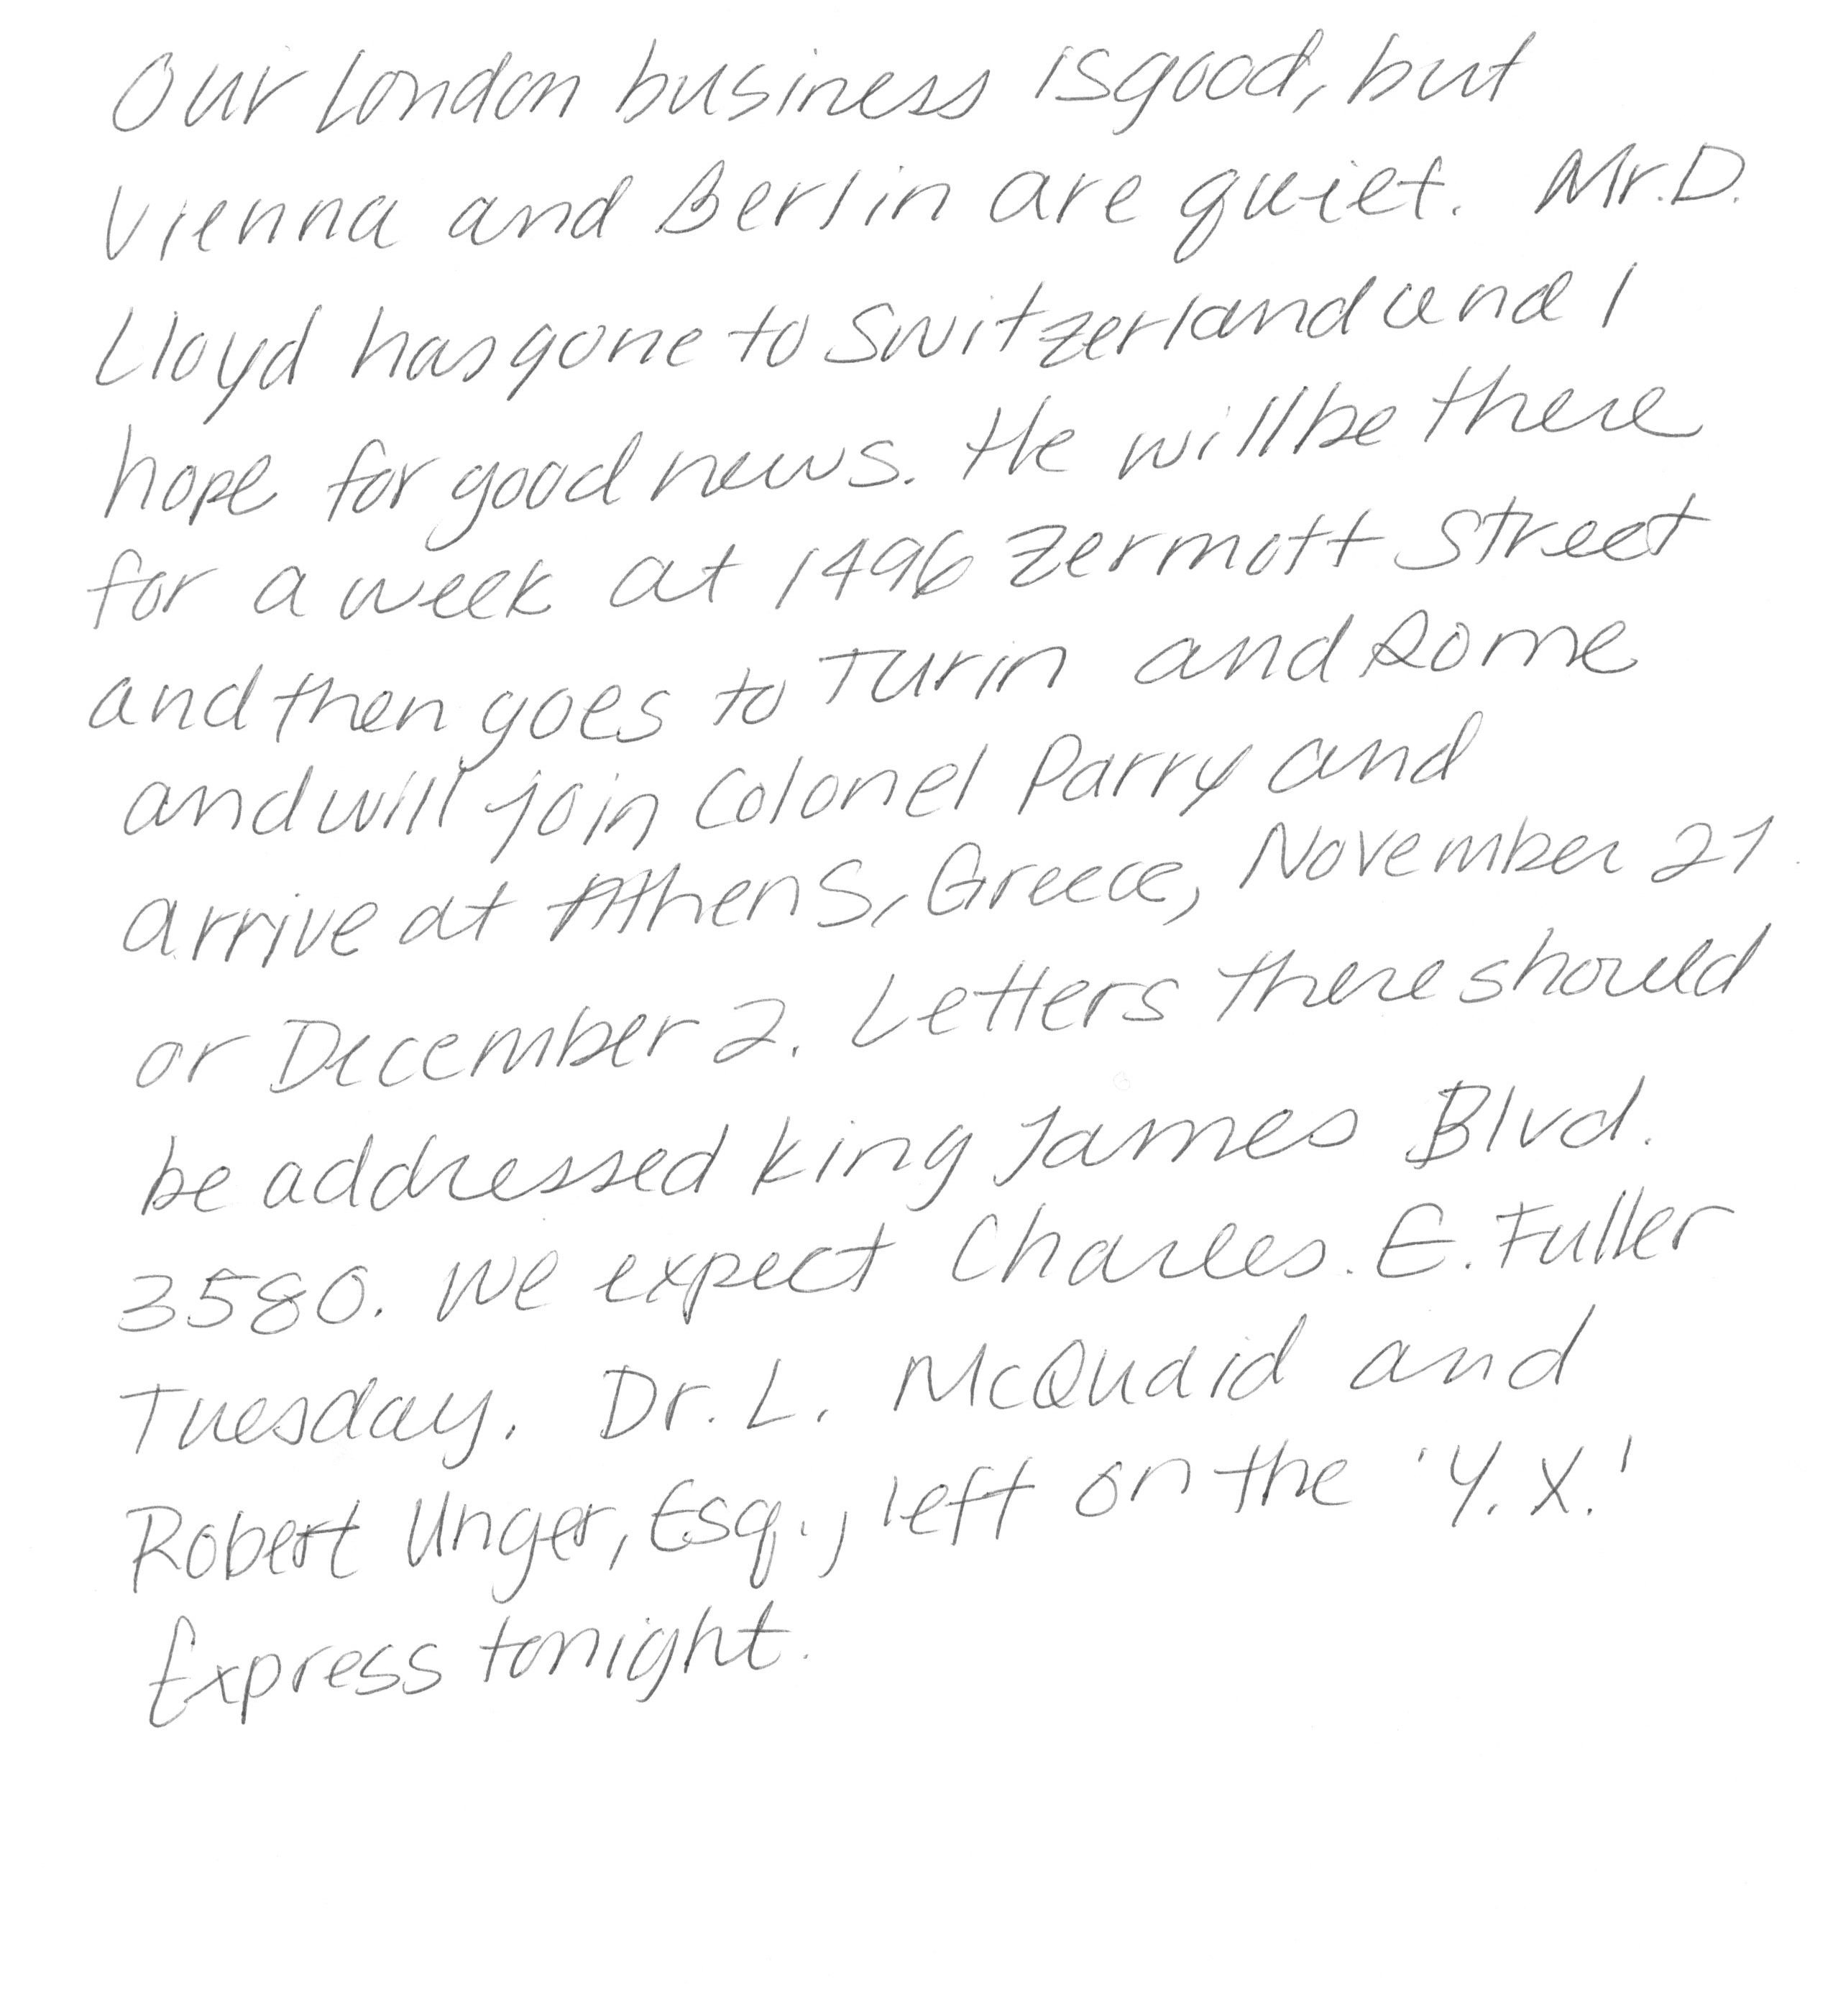 Our London business is good, but
Vienna and Berlin are quiet. Mr. D.
Lloyd has gone to Switzerland and I
hope for good news. He will be there
for a week at 1496 Zermott Street
and then goes to Turin and Rome
and will join Colonel Parry and
arrive at Athens, Greece, November 27
or December 2. Letters there should
be addressed King James Blvd.
3580. We expect Charles. E. Fuller
Tuesday. Dr. L. McQuaid and
Robert Unger, Esq., left on the 'Y. X.'
Express tonight.